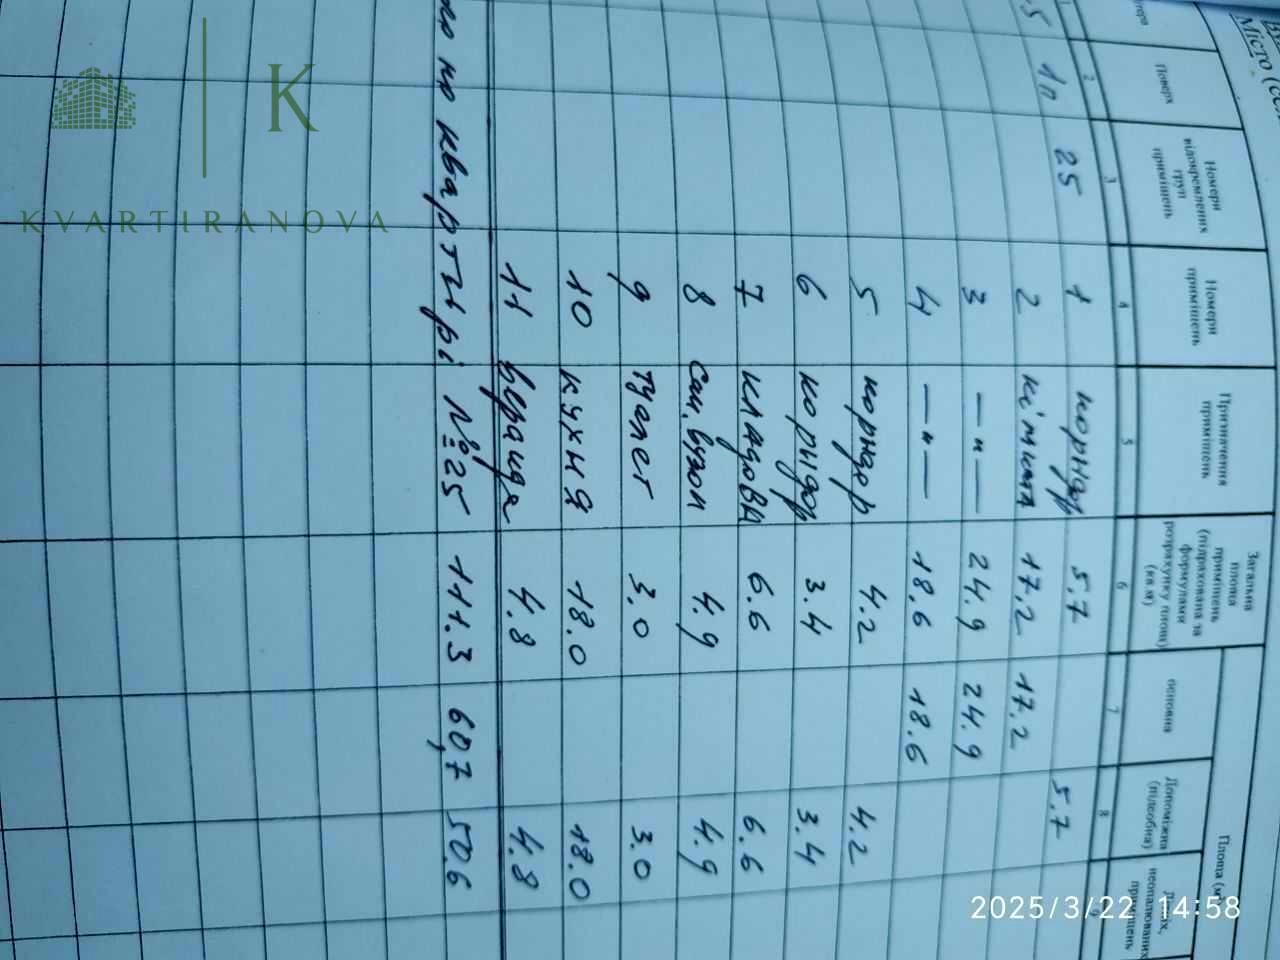 Місто
Поверх
Номери відокремлених груп приміщень
Номери приміщень
Призначення приміщень
Загальна площа приміщень (підрахована за формулами розрахунку площ) (кв.м)
Площа
основна
Допоміжна (підсобна)
неопалюваних приміщень
2 3 4 5 6 7 8
1п 25 1 коридор 5.7 5.7
2 кімната 17.2 17.2
3 —"— 24.9 24.9
4 —"— 18.6 18.6
5 коридор 4.2 4.2
6 коридор 3.4 3.4
7 кладова 6.6 6.6
8 сан. вузол 4.9 4.9
9 туалет 3.0 3.0
10 кухня 18.0 18.0
11 веранда 4.8 4.8
по квартирі №25 111.3 60,7 50.6
K
KVARTIRANOVA
2025/3/22 14:58